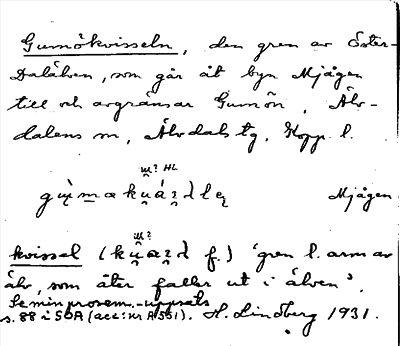 Gumökvisseln, den gren av Öster-
Dalälven, som går åt byn Mjågen
till och avgränsar Gumön, Älv-
dalens sn, Älvdals tg, Kopp. l.
Mjågen
kvissel f.) 'gren l. arm av
älv, som åter faller ut i älven'.
Se min prosem.-uppsats
s. 88 i SOA (acc: nr A 551). H. Lindberg 1931.